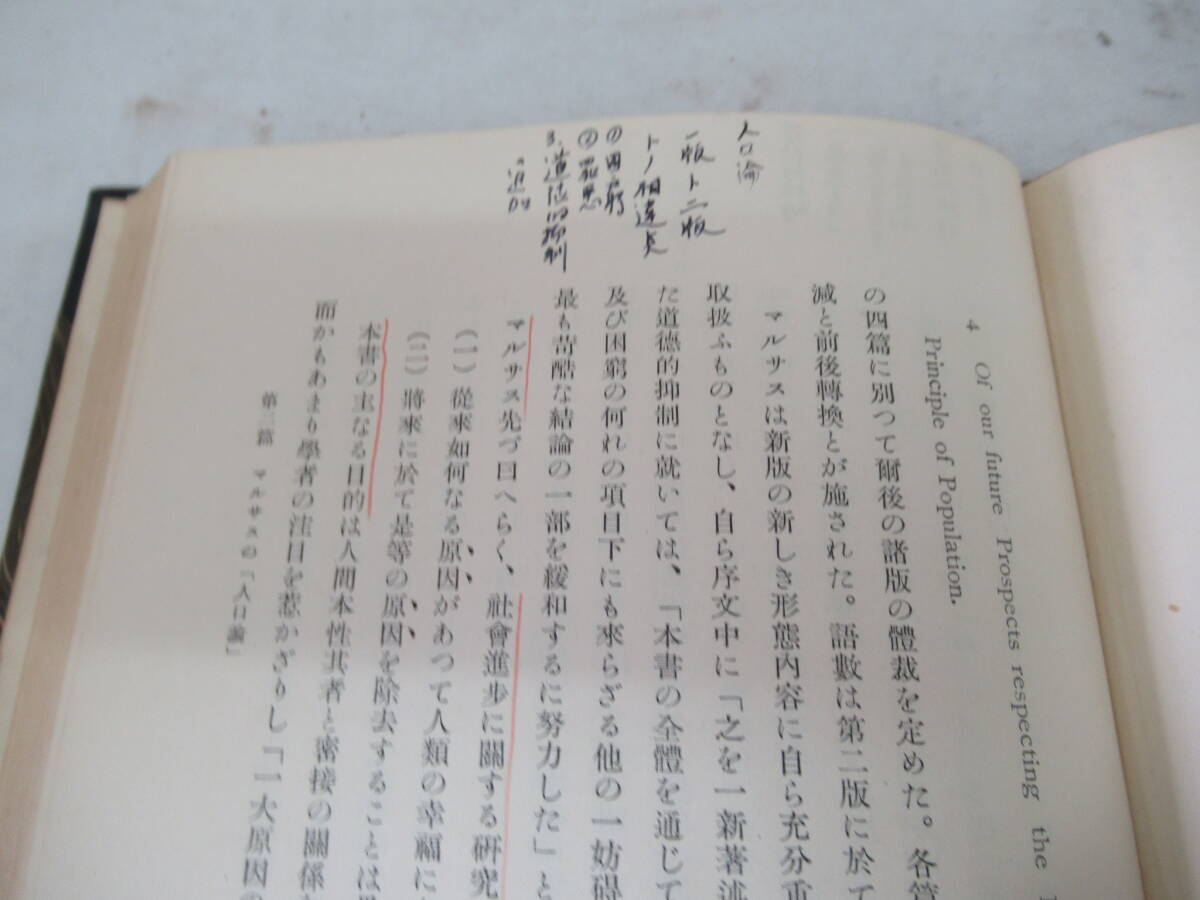 人口論
一版ト二版
トノ相違点
①困窮
②罪悪
3.道徳的抑制
4 Of our future Prospects respecting the
Principle of Population.
の四篇に別つて爾後の諸版の體裁を定めた。各
減と前後轉換とが施された。語數は第二版に於て
マルサスは新版の新しき形態内容に自ら充分重
取扱ふものとなし、自ら序文中に「之を一新著述
た道德的抑制に就いては、「本書の全體を通じて
及び困窮の何れの項目下にも來らざる他の一妨碍
最も苛酷な結論の一部を緩和するに努力した」と
マルサス先づ曰へらく、社會進步に關する硏究
(一) 從來如何なる原因があつて人類の幸福に
(二) 將來に於て是等の原因を除去することは
本書の主なる目的は人間本性其者と密接の關係
而かもあまり學者の注目を惹かざりし「一大原因の
第三篇 マルサスの「人口論」